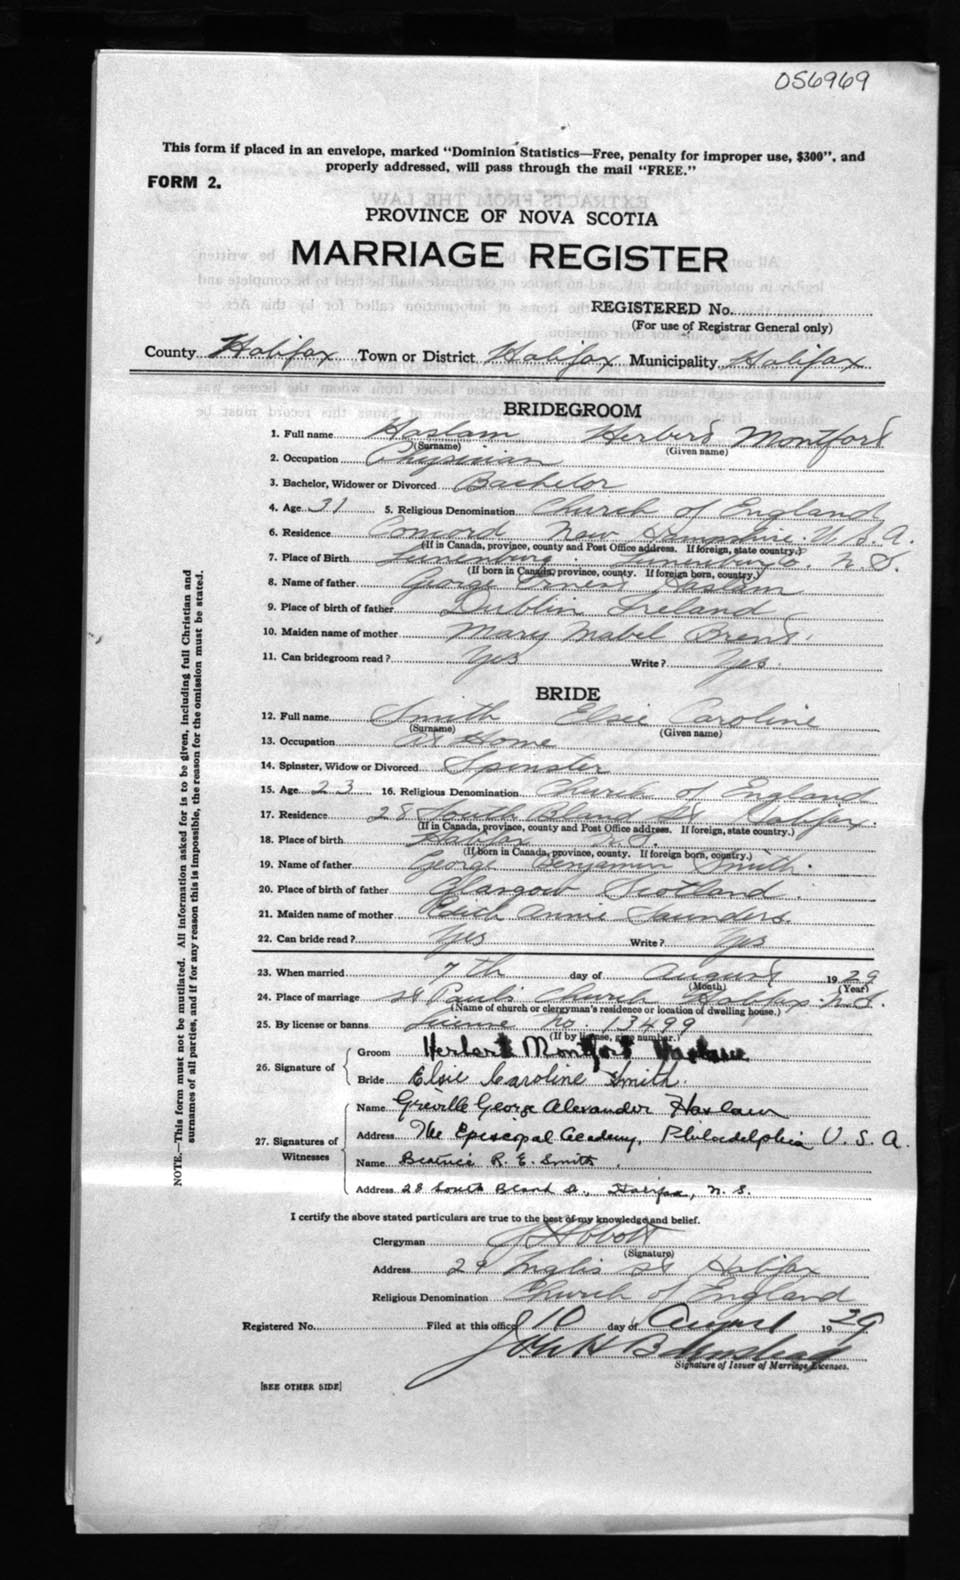 056969
This form if placed in an envelope, marked "Dominion Statistics—Free, penalty for improper use, $300", and
properly addressed, will pass through the mail "FREE."
FORM 2.
PROVINCE OF NOVA SCOTIA
MARRIAGE REGISTER
REGISTERED No.
(For use of Registrar General only)
County Halifax Town or District Halifax Municipality Halifax
BRIDEGROOM
1. Full name Haslam Herbert Montfort
(Surname) (Given name)
2. Occupation Physician
3. Bachelor, Widower or Divorced Bachelor
4. Age 31 5. Religious Denomination Church of England
6. Residence Concord New Hampshire U.S.A.
(If in Canada, province, county and Post Office address. If foreign, state country.)
7. Place of Birth Lunenburg. Lunenburg Co. N.S.
(If born in Canada, province, county. If foreign born, country.)
8. Name of father George Ernest Haslam
9. Place of birth of father Dublin Ireland
10. Maiden name of mother Mary Mabel Brent.
11. Can bridegroom read? Yes Write? Yes.
BRIDE
12. Full name Smith Elsie Caroline
(Surname) (Given name)
13. Occupation At Home
14. Spinster, Widow or Divorced Spinster
15. Age 23 16. Religious Denomination Church of England
17. Residence 28 South Bland St Halifax.
(If in Canada, province, county and Post Office address. If foreign, state country.)
18. Place of birth Halifax N.S.
(If born in Canada, province, county. If foreign born, country.)
19. Name of father George Benjamin Smith.
20. Place of birth of father Glasgow Scotland.
21. Maiden name of mother Edith Annie Saunders.
22. Can bride read? Yes Write? Yes
23. When married 7th day of August 1929
(Month) (Year)
24. Place of marriage St Paul's Church Halifax. N.S.
(Name of church or clergyman's residence or location of dwelling house.)
25. By license or banns License No. 13499
(If by license, give number.)
26. Signature of
Groom Herbert Montfort Haslam
Bride Elsie Caroline Smith.
27. Signatures of Witnesses
Name Greville George Alexander Haslam
Address The Episcopal Academy, Philadelphia U.S.A.
Name Beatrice R. E. Smith.
Address 28 South Bland St., Halifax, N.S.
I certify the above stated particulars are true to the best of my knowledge and belief.
Clergyman Abbott
(Signature)
Address 29 Inglis St Halifax
Religious Denomination Church of England
Registered No. Filed at this office 10 day of August 1929
John H B
Signature of Issuer of Marriage Licenses.
[SEE OTHER SIDE]
NOTE.—This form must not be mutilated. All information asked for is to be given, including full Christian and
surnames of all parties, and if for any reason this is impossible, the reason for the omission must be stated.